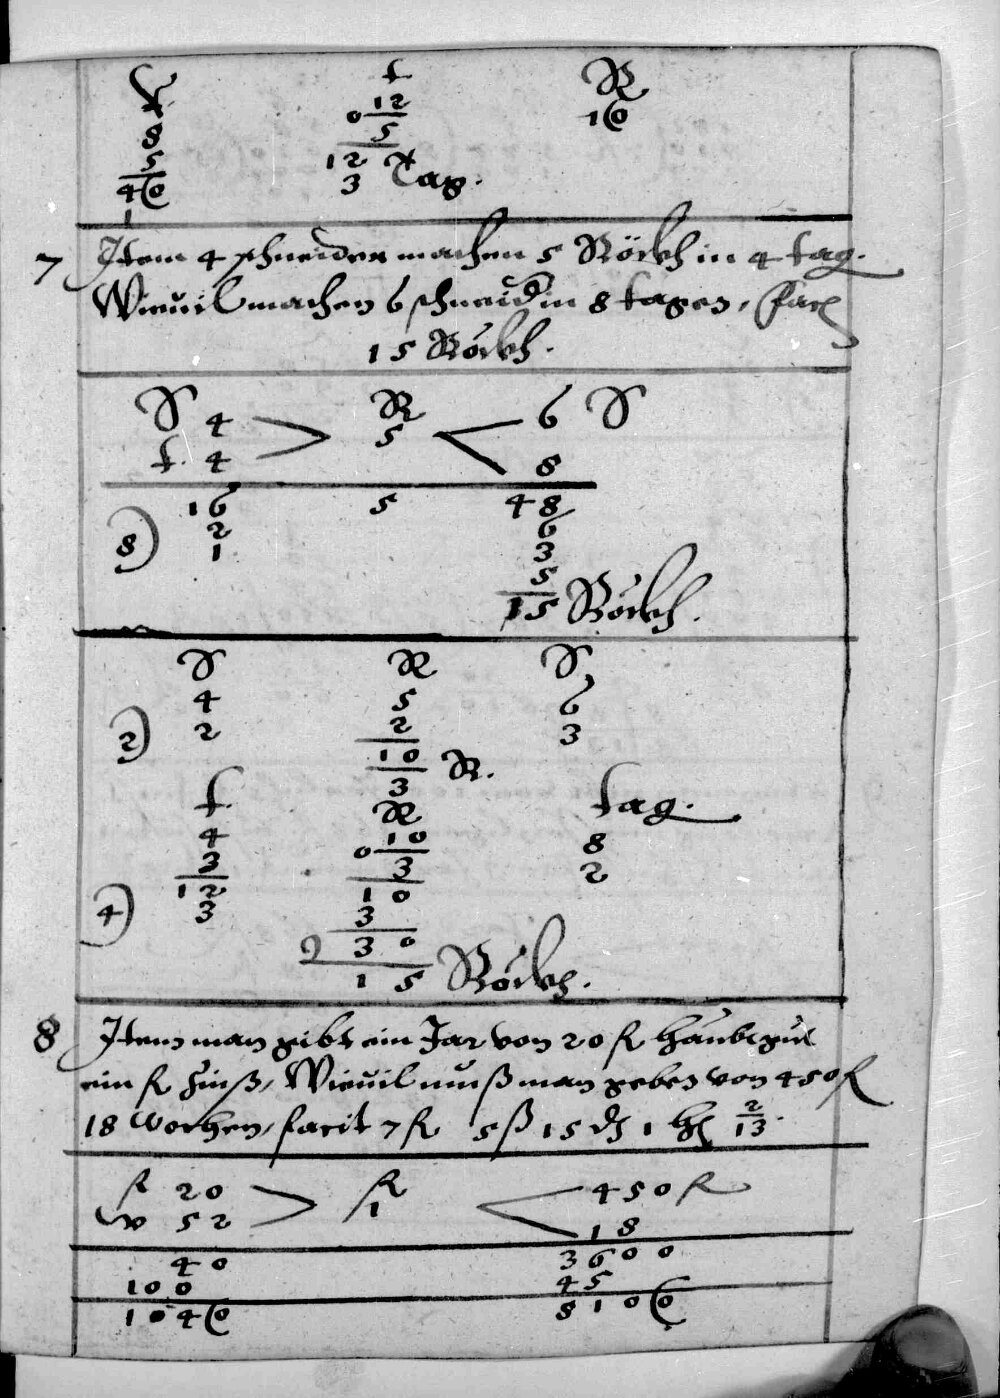 t R
8 0 12 10
5 5
40 12 Tag.
1 3
7 Item 4 schneider machen 5 Röckh in 4 tag.
Wieuil machen 6 schneid in 8 tagen, facit
15 Röckh.
S 4 R 6 S
t. 4 5 8
16 5 48
8) 2 6
1 3
5
15 Röckh.
S R S
4 5 6
2) 2 2 3
10 R.
3
t R tag.
4 0 10 8
3 3 2
12 10
4) 3 3
2 30
15 Röckh.
8 Item man gibt ein Jar von 20 fl haubtgut
ein fl Zinß, Wieuil muß man geben von 450 fl
18 wochen, facit 7 fl 5 ß 15 ₰ 1 hl 2/13.
fl 20 fl 450 fl
w 52 1 18
40 3600
100 45
1040 8100